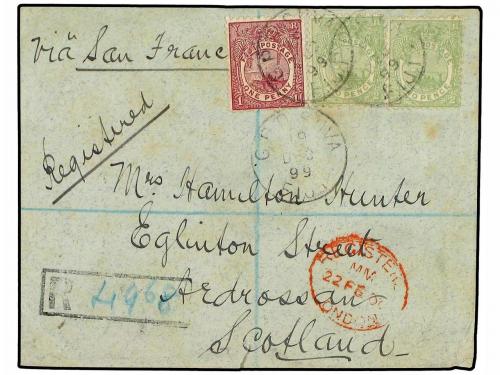 Via San Franc
POSTAGE
ONE PENNY
PENCE
TWO PENCE
Registered
G.P.O. SUVA
99
Mrs Hamilton Hunter
Eglinton Street
Ardrossan
Scotland
R 4968
REGISTERED
MM
22 FE
LONDON